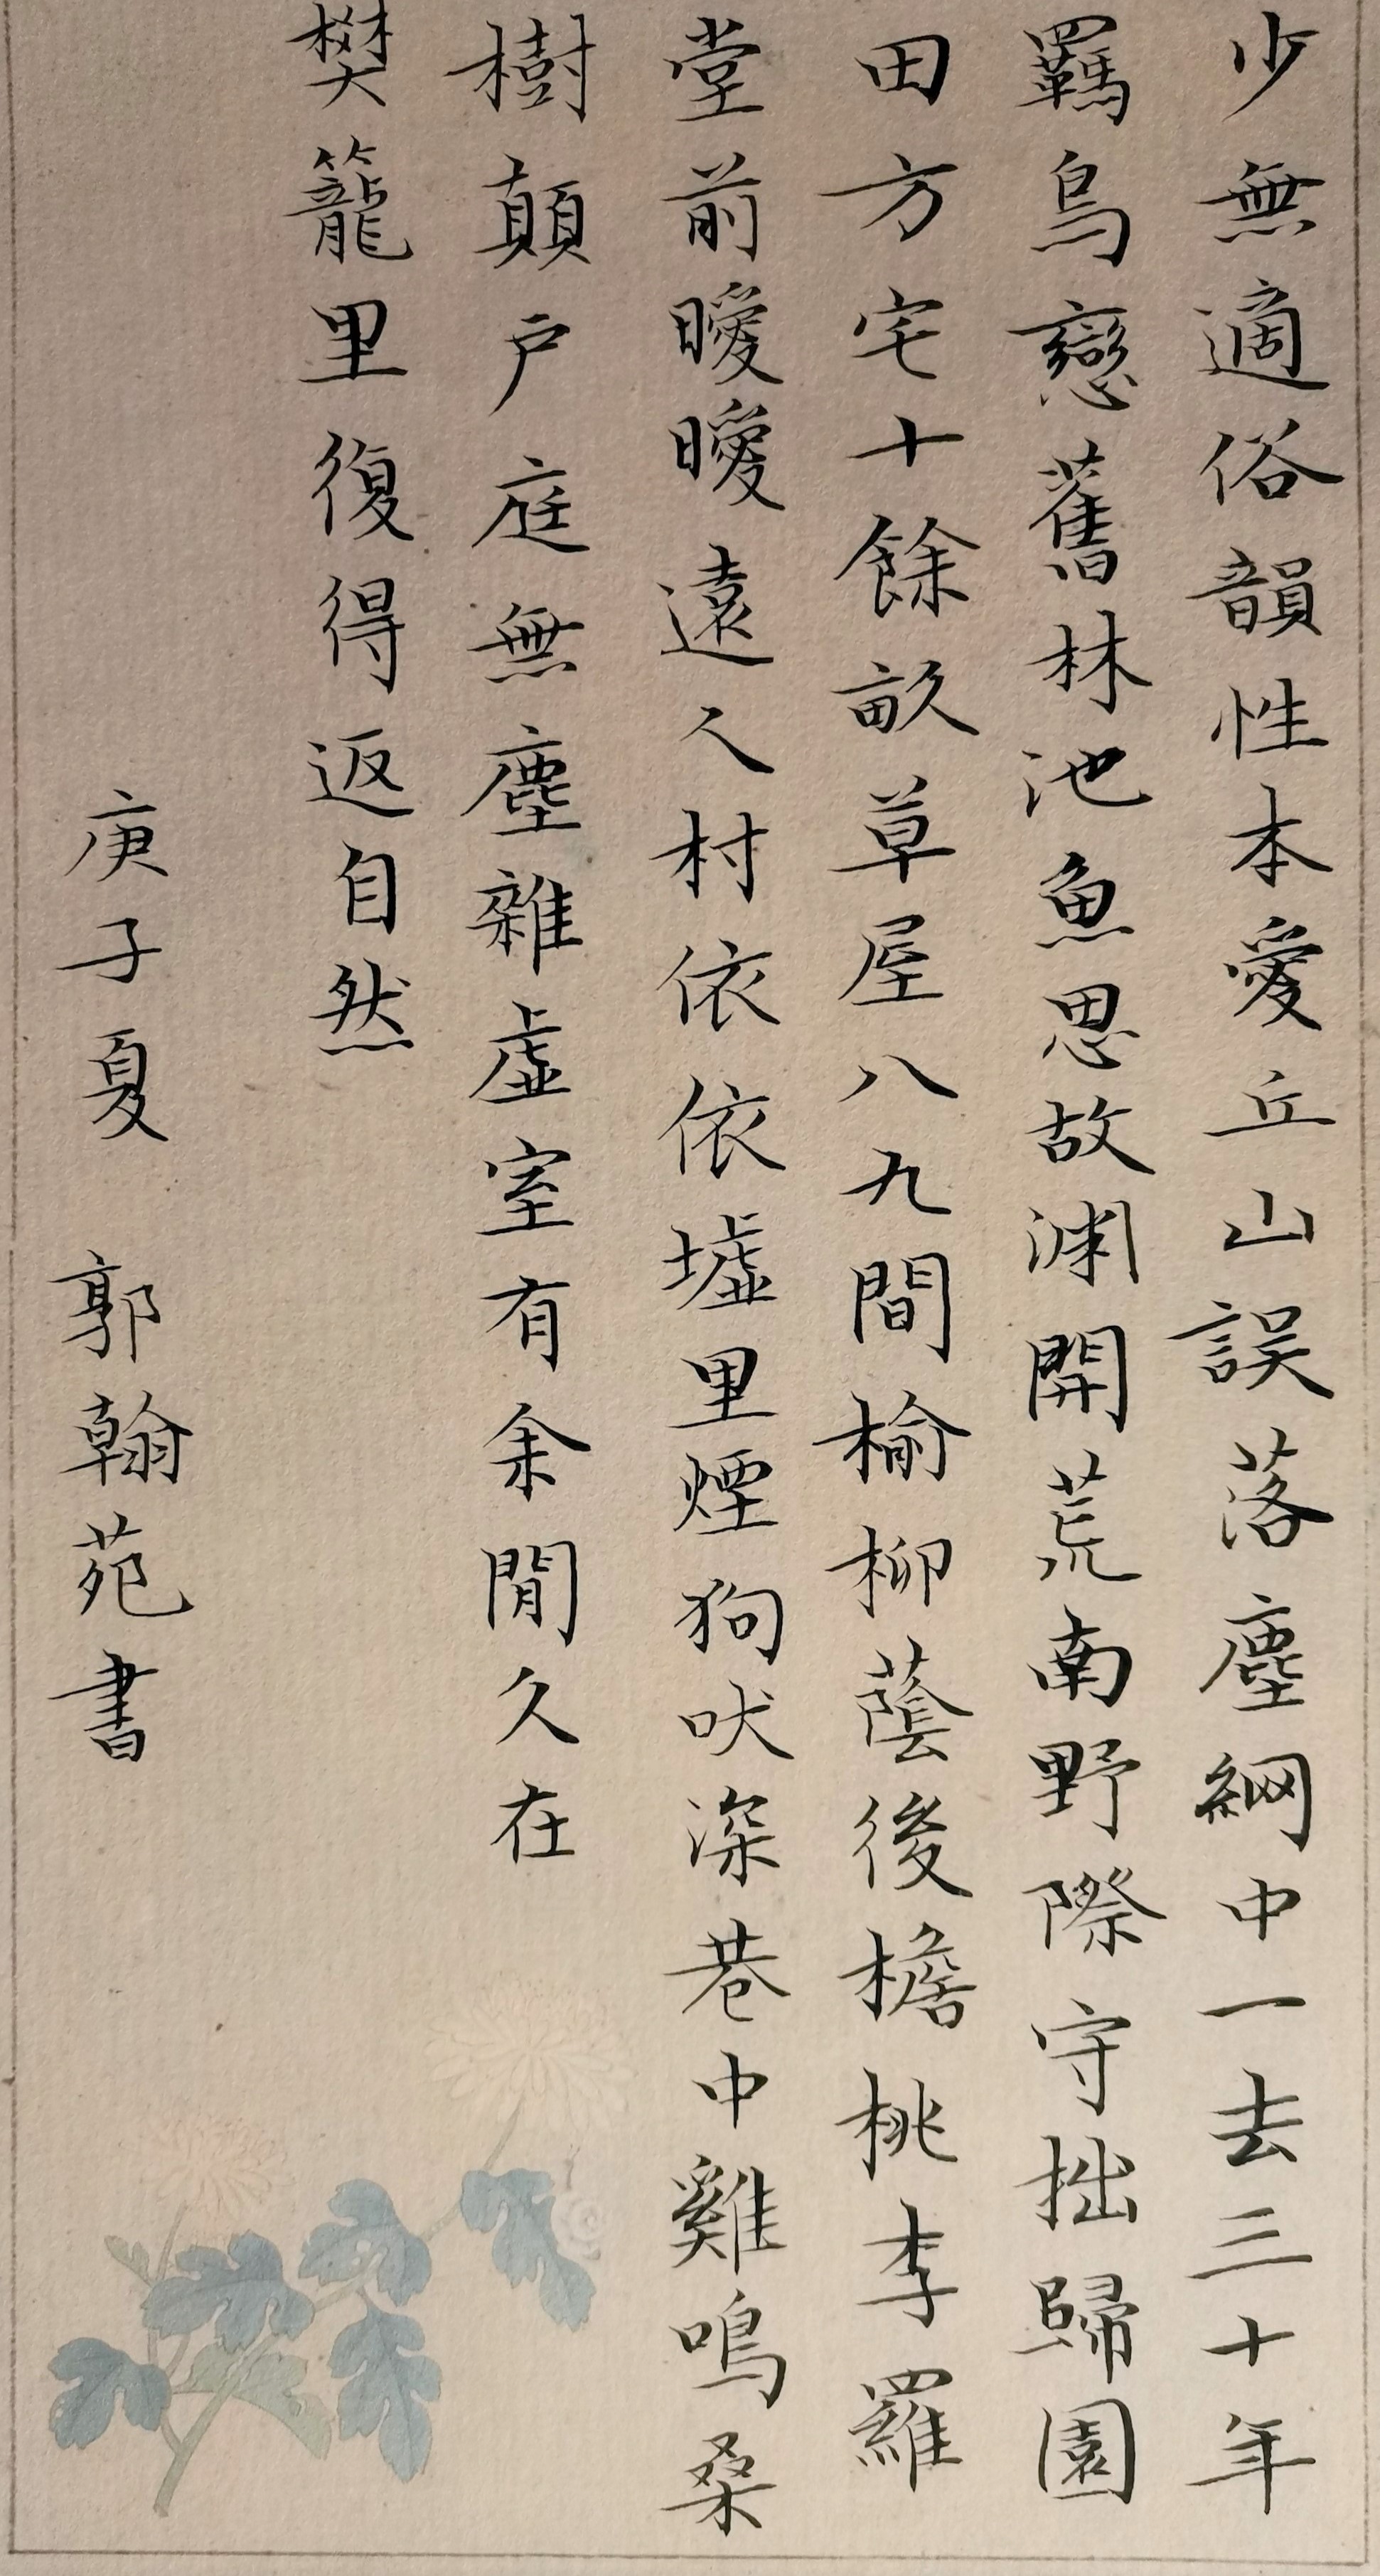 少無適俗韻性本愛丘山誤落塵網中一去三十年
羈鳥戀舊林池魚思故渊開荒南野際守拙歸園
田方宅十餘畝草屋八九間榆柳蔭後檐桃李羅
堂前曖曖遠人村依依墟里煙狗吠深巷中雞鳴桑
樹顛户庭無塵雜虛室有余閒久在
樊籠里復得返自然
庚子夏 郭翰苑書